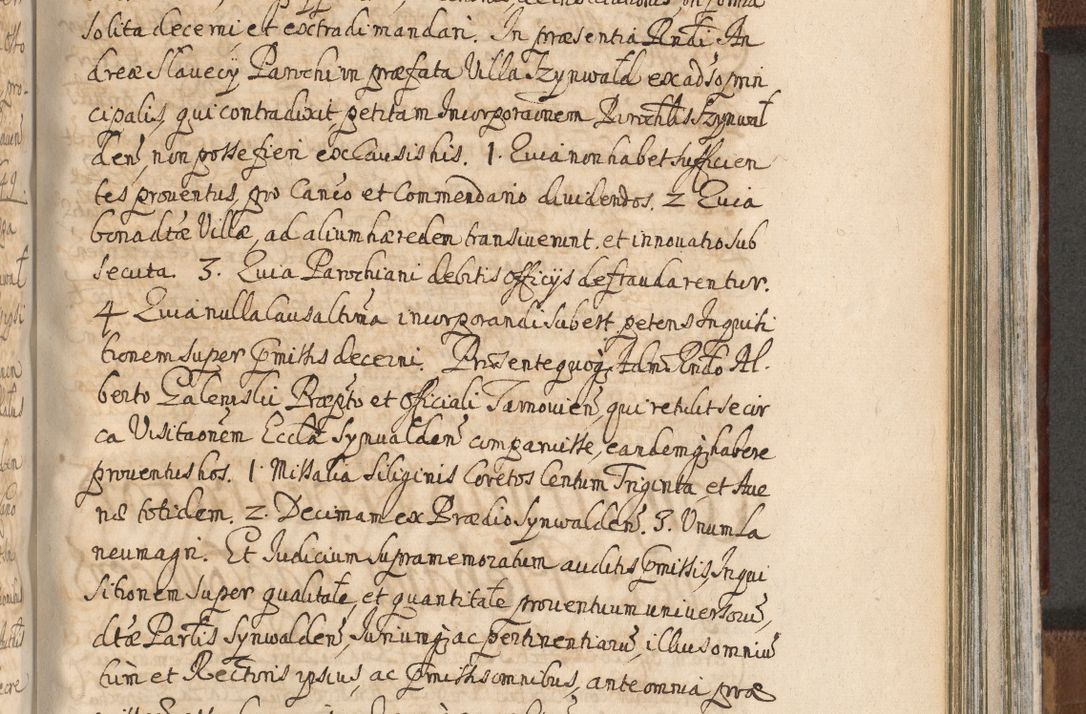 solita decerni et extradi mandari. In præsentia Rndi An
dreæ Slavecÿ Parochi in præfata Villa Szynwałd ex adso prin
cipalis, qui contradixit, petitam Incorporaonem Parochłis Szynwał
den, non posse fieri ex clausis his. 1. Quia non habet sufficien
tes proventus, pro Canco et Commendario dividendos. 2 Quia
bona dtæ Villæ, ad alium hæredem transiverunt. et innovatio sub
secuta. 3. Quia Parochiani debitis officÿs defraudarentur.
4 Quia nulla causa ltma incorporandi subest, petens Inquisi
tionem super pmissis decerni. Præsente quoq Adm Rndo Al.
berto Præpto et Officiali Tarnovien, qui retulit se cir
ca Visitaonem Eccla Synvalden comparuisse, eandemq habere
proventus hos. 1. Missalia siliginis Coretos Centum Triginta et Ave
næ totidem. 2. Decimam ex Prædio Synwalden. 3. Unum La
neum agri. Et Iudicium supramemoratum auditis pmissis, Inqui
sitionem super qualitate, et quantitate proventuum universoru,
dtæ Parlis Synwalden, Iuriumq ac pertinentiaru, illius omniu
tum et Rectoris ipsius, ac pmissis omnibus, ante omnia præ